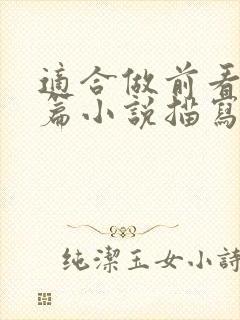 適合做前看
篇小說描寫
纯潔玉女小詩